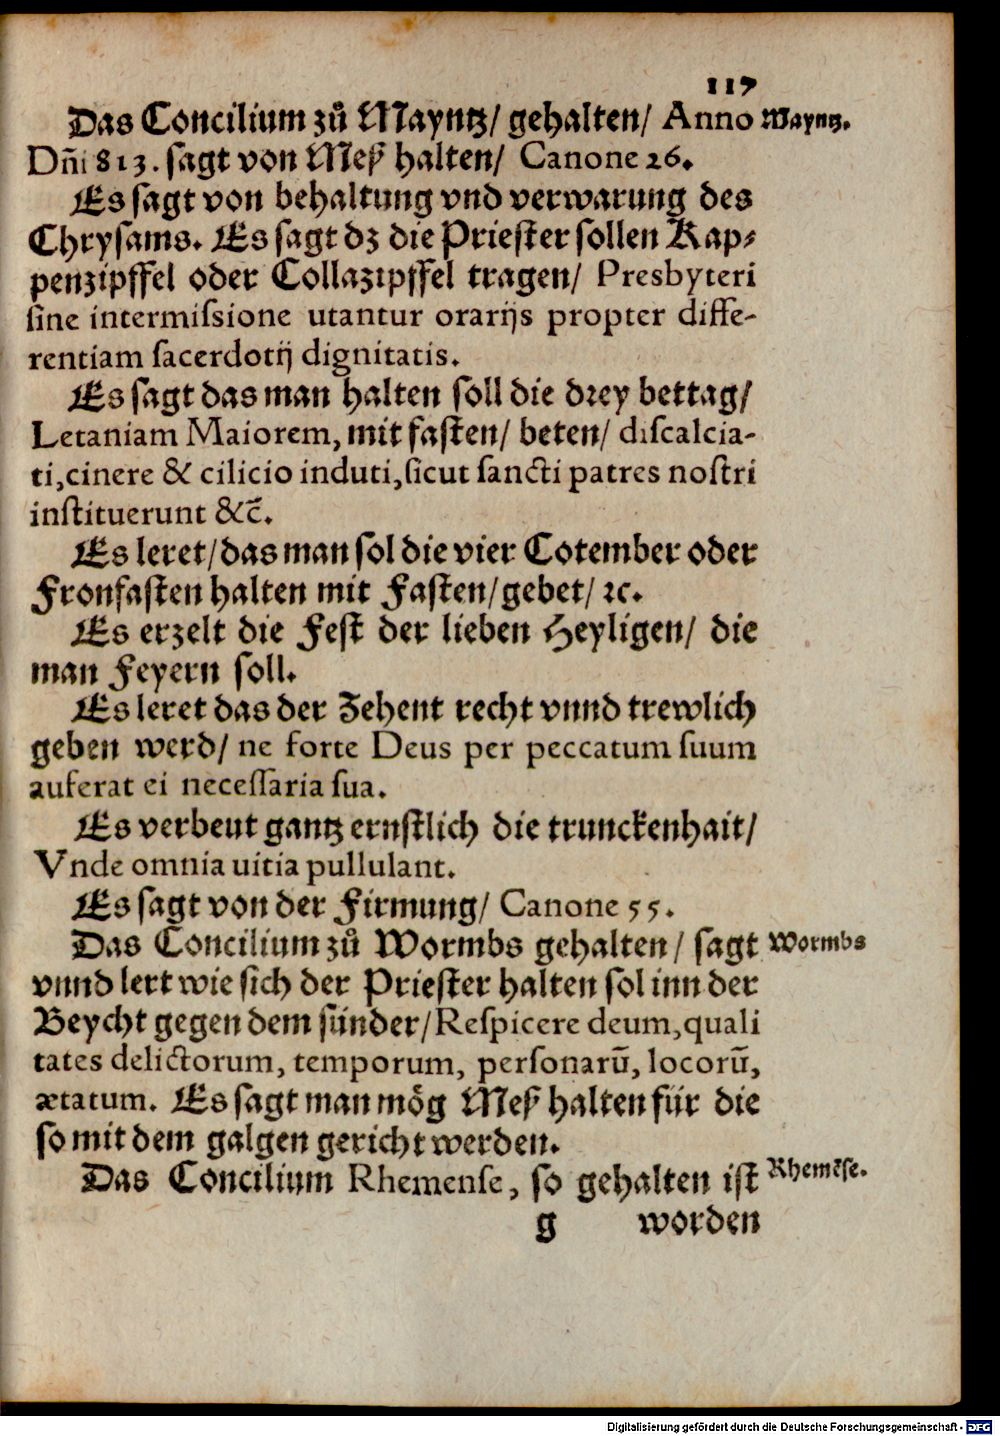 117
Das Concilium zů Mayntz/ gehalten/ Anno Mayntz.
Dñi 813. sagt von Meß halten/ Canone 26.
Es sagt von behaltung vnd verwarung des
Chrysams. Es sagt dz die Priester sollen Kap⸗
penzipffel oder Collazipffel tragen/ Presbyteri
ſine intermiſsione utantur orarijs propter diffe-
rentiam ſacerdotij dignitatis.
Es sagt das man halten soll die drey bettag/
Letaniam Maiorem, mit fasten/ beten/ diſcalcia-
ti, cinere & cilicio induti, ſicut ſancti patres noſtri
inſtituerunt &c̃.
Es leret/ das man sol die vier Cotember oder
Fronfasten halten mit Fasten/ gebet/ ꝛc.
Es erzelt die Fest der lieben Heyligen/ die
man Feyern soll.
Es leret das der Zehent recht vnnd trewlich
geben werd/ ne forte Deus per peccatum ſuum
auferat ei neceſſaria ſua.
Es verbeut gantz ernstlich die trunckenhait/
Vnde omnia uitia pullulant.
Es sagt von der Firmung/ Canone 55.
Das Concilium zů Wormbs gehalten/ sagt Wormbs
vnnd lert wie sich der Priester halten sol inn der
Beycht gegen dem sünder/ Reſpicere deum, quali
tates delictorum, temporum, perſonarũ, locorũ,
ætatum. Es sagt man mög Meß halten für die
so mit dem galgen gericht werden.
Das Concilium Rhemenſe, so gehalten ist Rhemẽse.
g worden
Digitalisierung gefördert durch die Deutsche Forschungsgemeinschaft - DFG